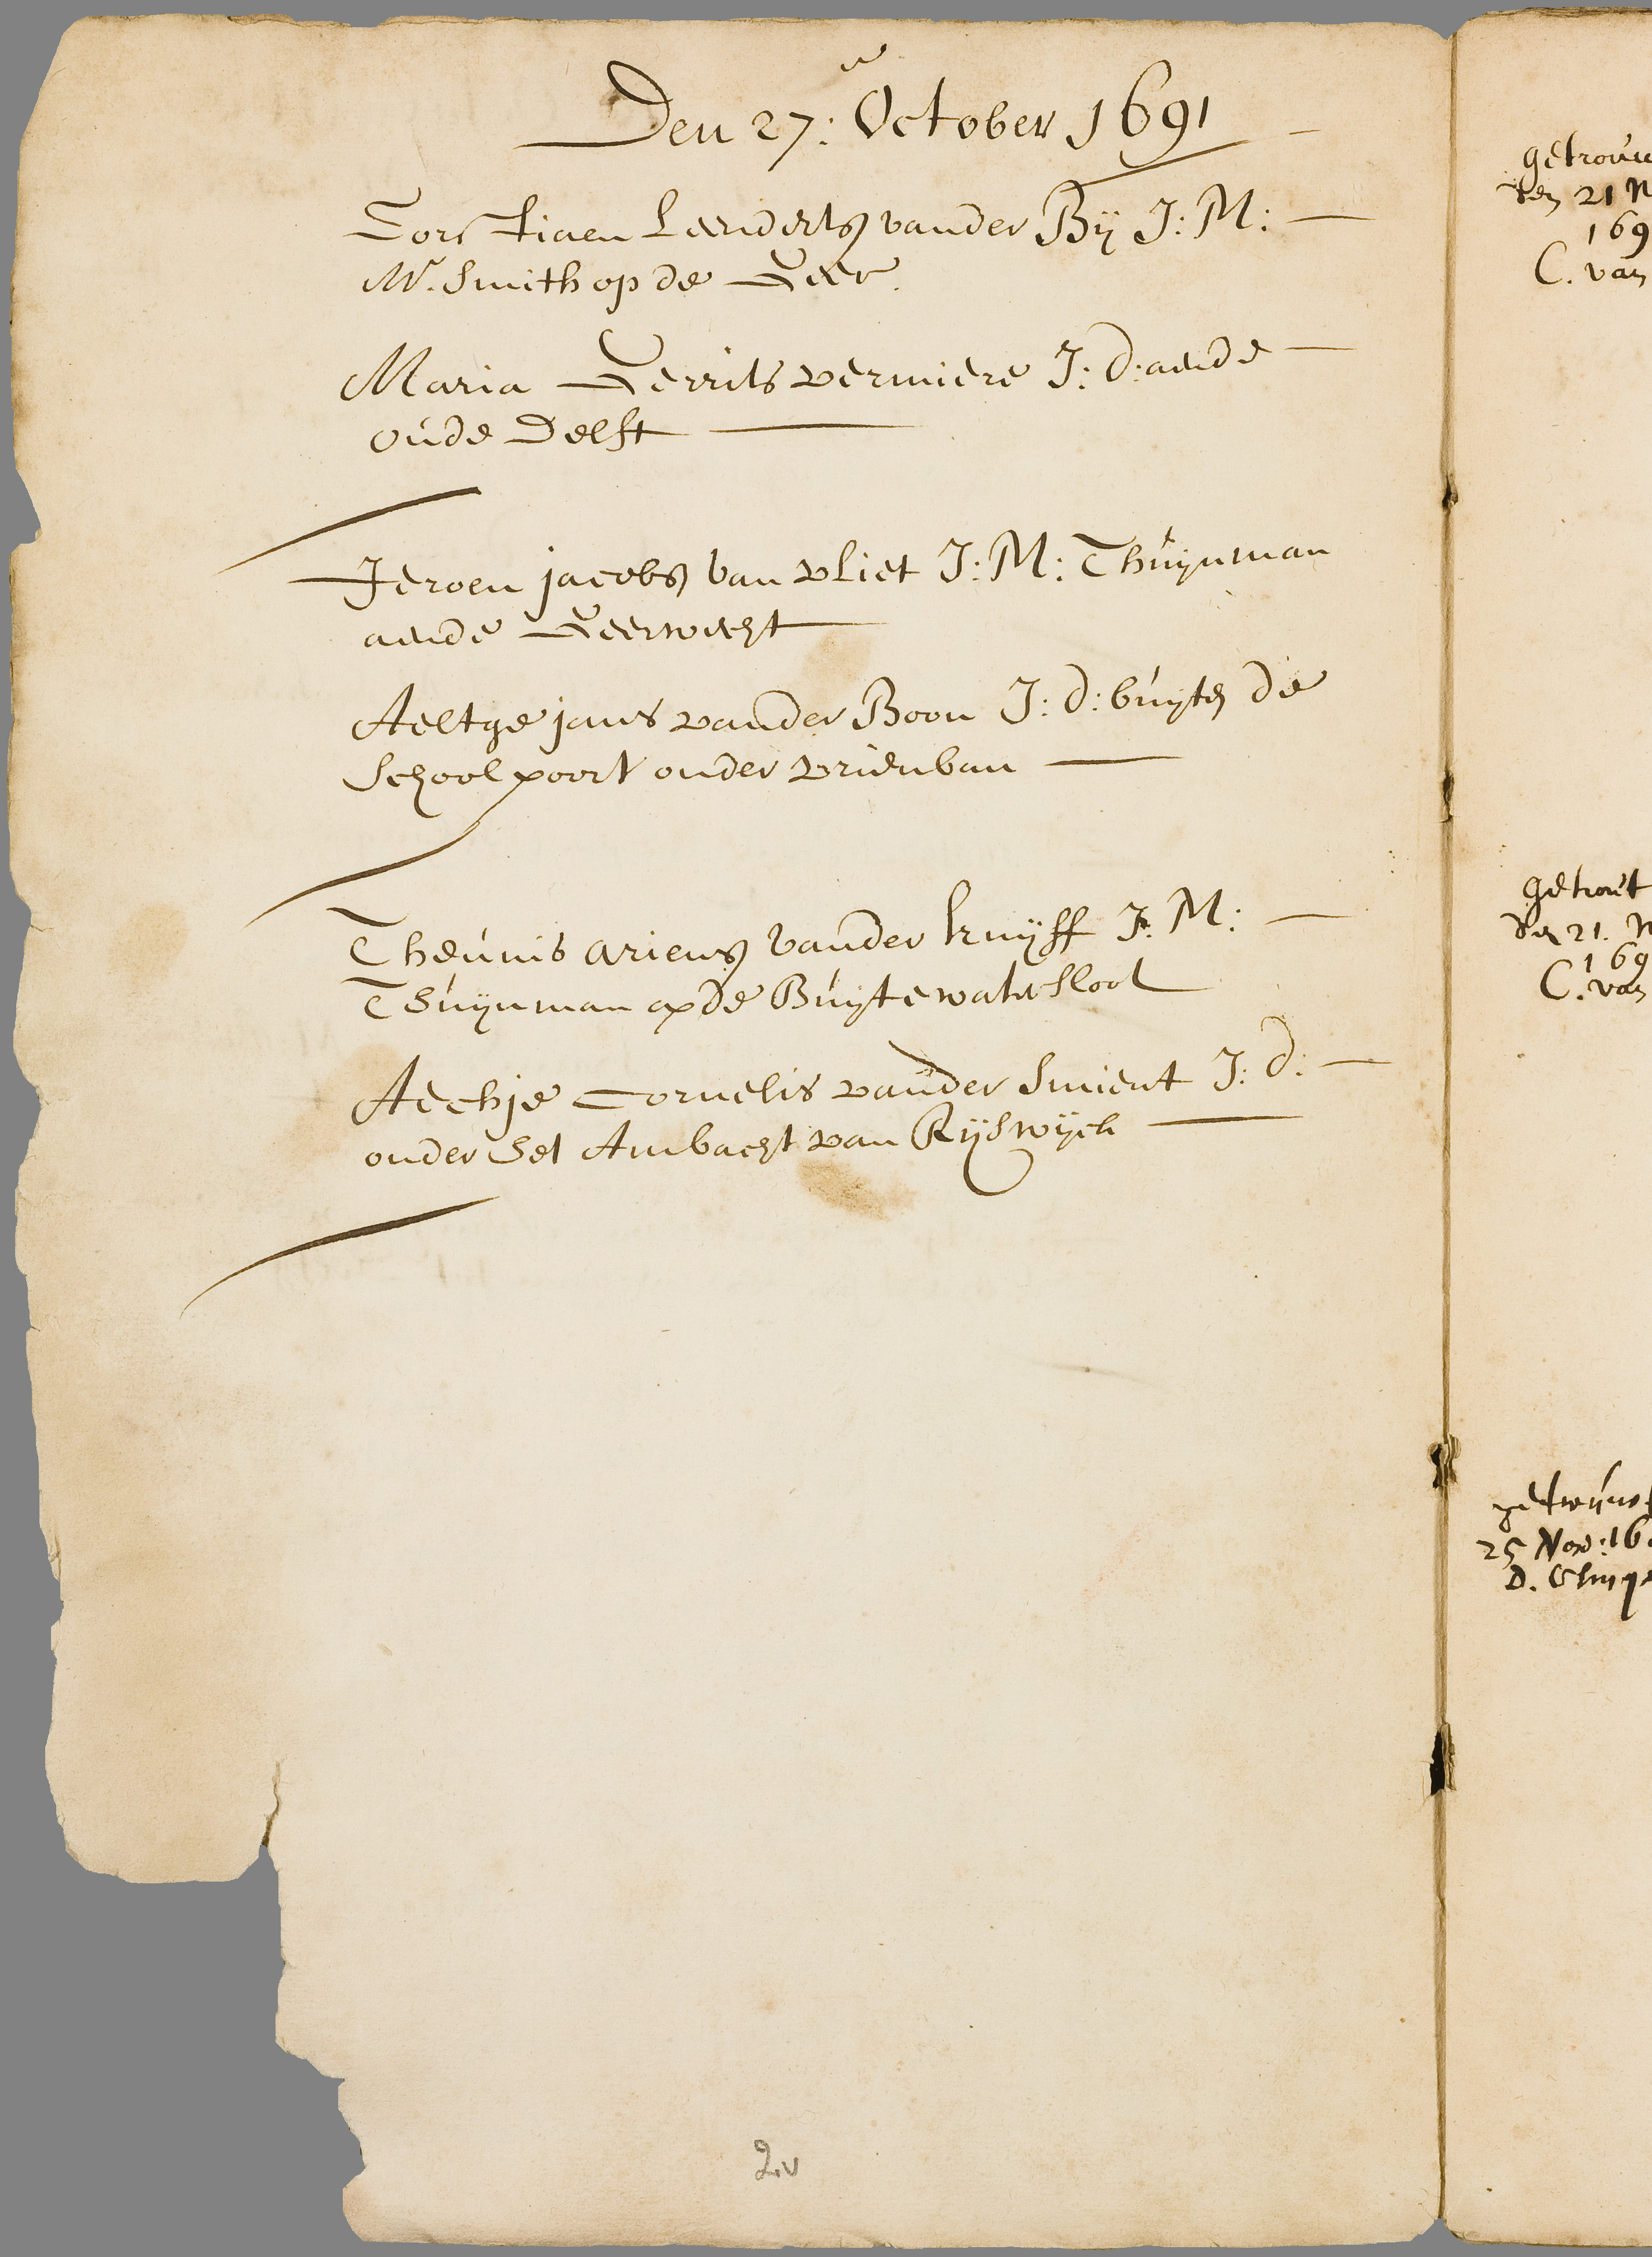 Den 27: October 1691
Corstiaen Leenderts vander Bij J: M:
Mr. Smith op de Geer.
Maria Gerrits vermiere J: d: aende
oude Delft
Jeroen jacobs van vliet J: M: Thuijnman
aende Geerweght
Aeltge jans vander Boon J: d: buyten de
Schoolpoort onder vrienban
Theunis ariens vander kruijff J: M:
Thuijnman op de Buytewatersloot
Aechje Cornelis vander Smient J: d:
onder het Ambacht van Rijswijck
2v
getrouw
den 21 N
169
C. van
getrout
den 21. N
169
C. van
25 Nov: 16
D.